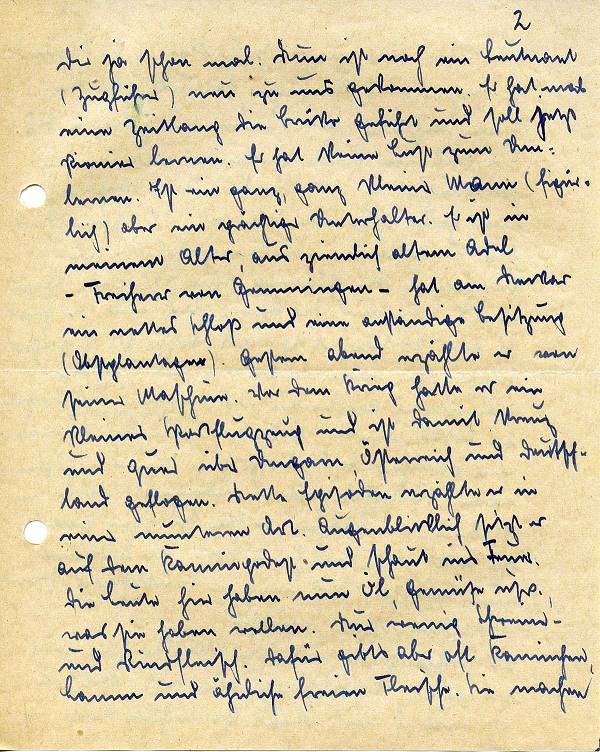 2
Dir ja schon mal. Nun ist noch ein Leutnant
(Zugführer) neu zu uns gekommen. Er hat
eine Zeitlang die geführt und soll jetzt
Pionier lernen. Er hat keine Lust zum Um-
lernen. Ist ein ganz, ganz kleiner Mann (figür-
lich) aber ein prächtiger Unterhalter. Er ist in
meinem Alter, aus ziemlich altem Adel
- Freiherr von Gemmingen - hat am Neckar
ein nettes Schloß und eine anständige Besitzung
(Obstplantagen). Gestern abend erzählte er von
seiner Maschine. Vor dem Krieg hatte er ein
kleines Sportflugzeug und ist damit kreuz
und quer über Ungarn, Österreich und Deutsch-
land geflogen. Nette Episoden erzählte er in
einer munteren Art. Augenblicklich sitzt er
auf dem und schaut ins Feuer.
Die Leute hier haben nun Öl, Gemüse usw.,
was sie haben wollen. Nur wenig Schweine-
und Rindfleisch. Dafür gibts aber oft Kaninchen,
Lamm und ähnliche Fleische. Sie machen